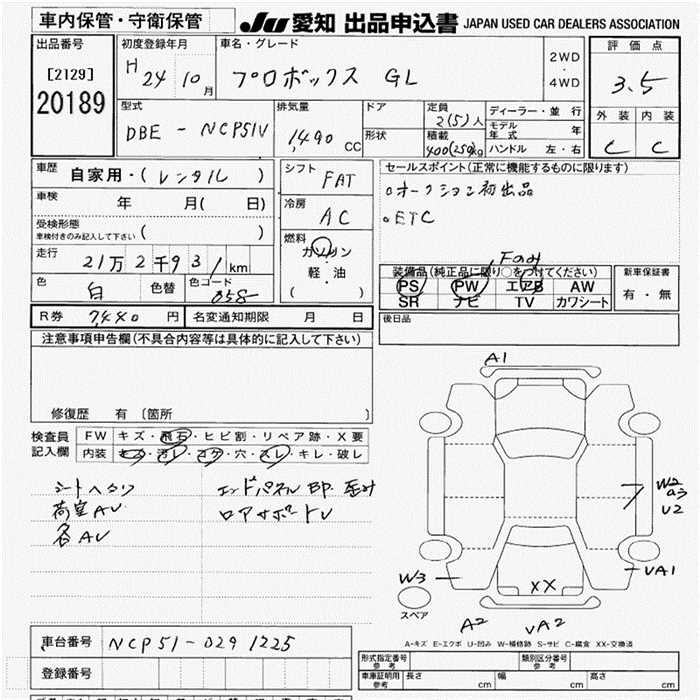 車内保管・守衛保管
JU 愛知 出品申込書 JAPAN USED CAR DEALERS ASSOCIATION
出品番号
[2129]
20189
初度登録年月
H 24 10 月
車名・グレード
プロボックス GL
2WD
・
4WD
評価点
3.5
外装 内装
C C
型式
DBE - NCP51V
排気量
1,490 CC
ドア
形状
定員
2(5)人
積載
400(250)kg
ディーラー・並行
モデル年式 年
ハンドル 左・右
車歴
自家用・(レンタル)
車検
年 月( 日)
受検形態
車検付きのみ記入して下さい ( )
走行
21万2千931km
色
白
色替
色コード
058
シフト
FAT
冷房
AC
燃料
ガソリン
・
軽・油
( )
セールスポイント(正常に機能するものに限ります)
○オークション初出品
○ETC
Fのみ
装備品(純正品に限り○をつけてください)
PS PW エアB AW
SR ナビ TV カワシート
新車保証書
有・無
後日品
R券 7,440円
名変通知期限 月 日
注意事項申告欄(不具合内容等は具体的に記入して下さい)
修復歴 有〔箇所 〕
検査員
記入欄
FW キズ・飛石・ヒビ割・リペア跡・X要
内装 キズ・汚レ・コゲ・穴・スレ・キレ・破レ
シートヘタリ
荷室AU
各AU
エンドパネルBP歪み
ロアサポートU
A1
W2
U2
VA1
W3
スペア
XX
A2
VA2
A-キズ E-エクボ U-凹み W-補修跡 S-サビ C-腐食 XX-交換済
車台番号 NCP51-0291225
登録番号
形式指定番号
参考
類別区分番号
参考
車庫証明用
参考
長さ cm 幅 cm 高さ cm